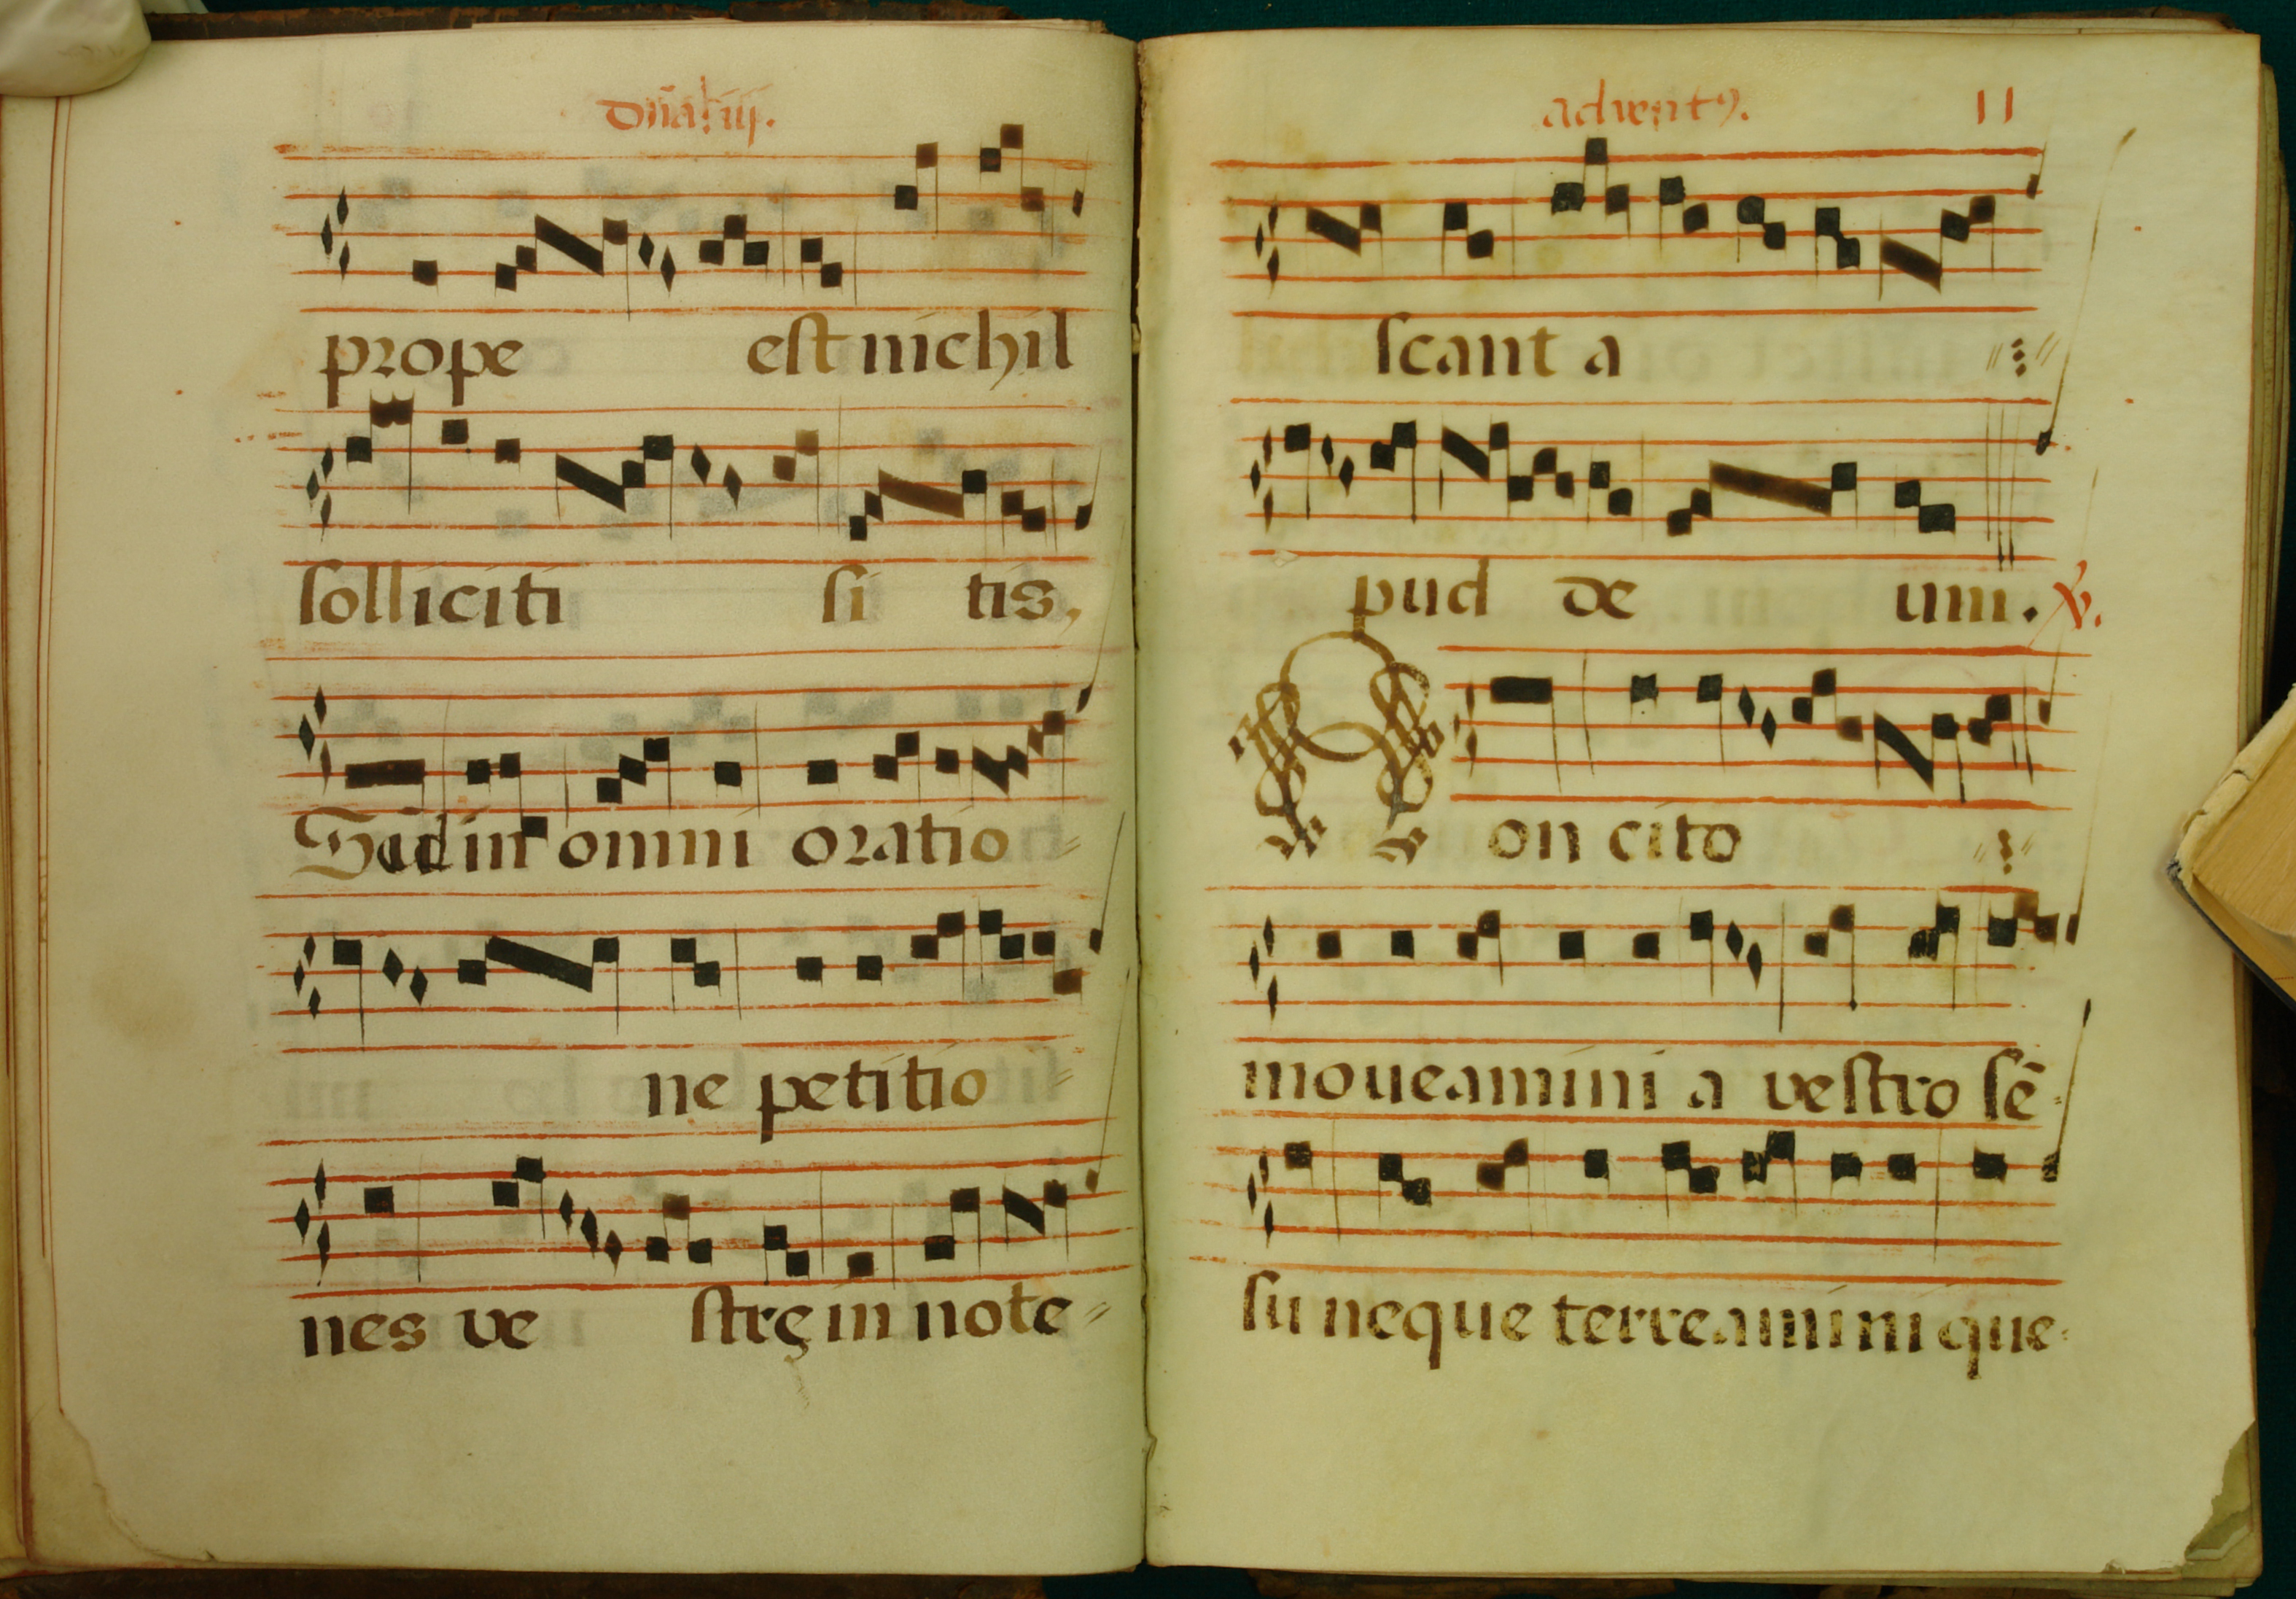 dn̄aꝉ iij.
prope est nichil
solliciti si tis,
Sed in omni oratio
ne petitio
nes ve strę in note
advent9. 11
scant a
pud de um. ℣.
Non cito
moueamini a vestro sē
su neque terreamini que